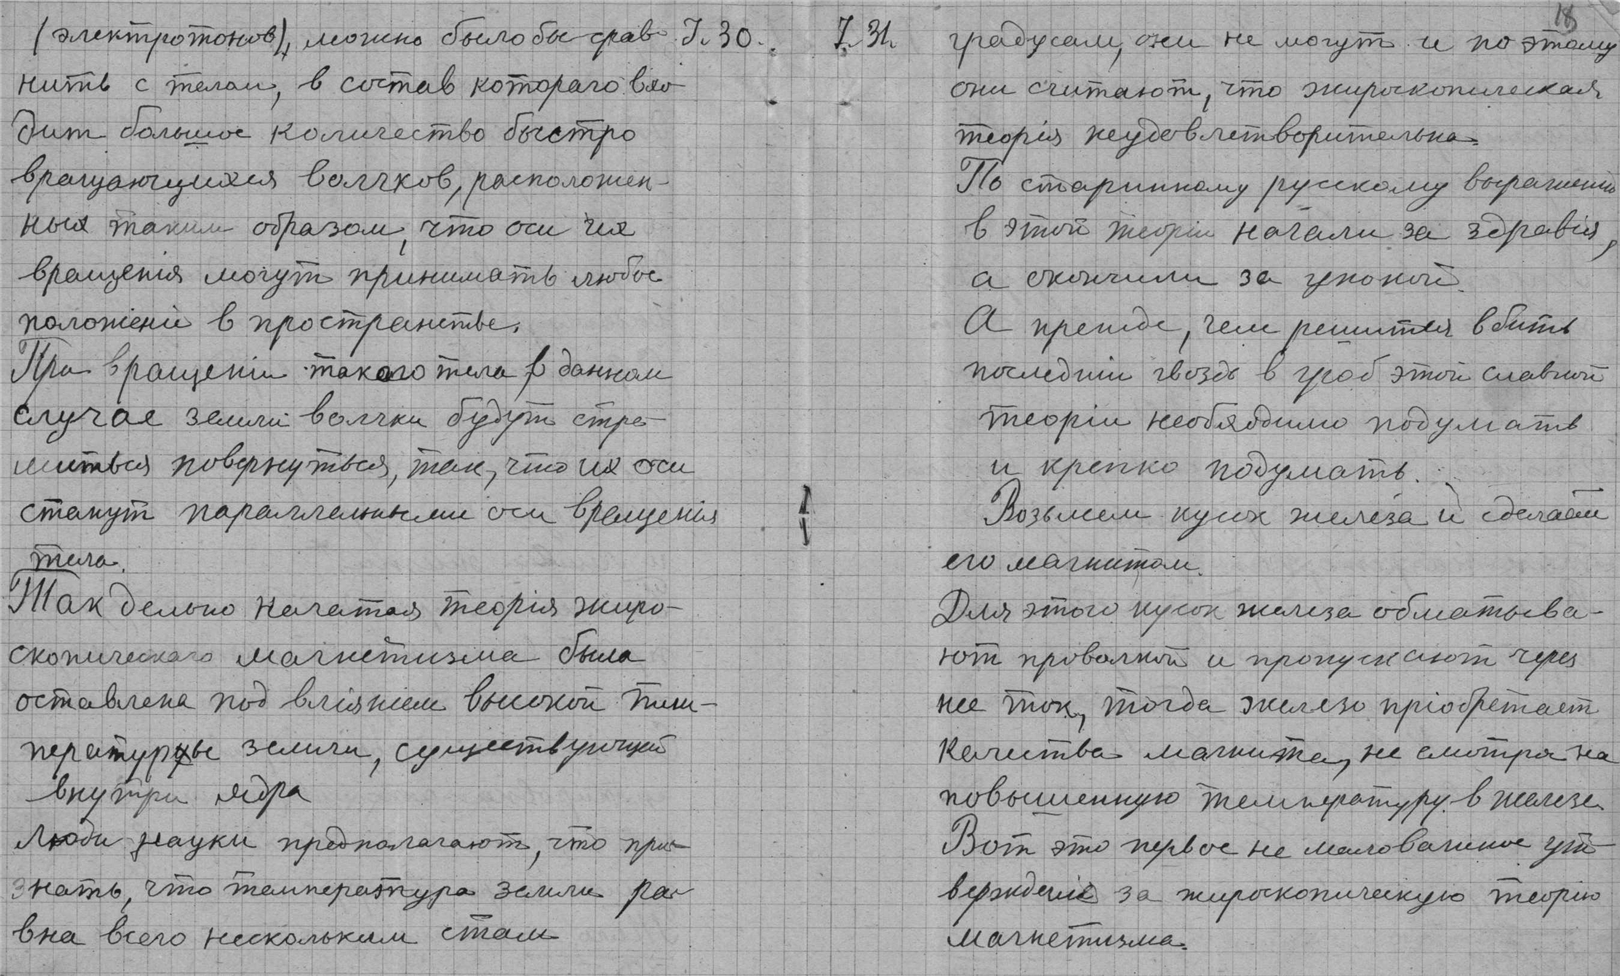 (электротонов), можно было бы срав- I. 30.
нить с телом, в состав котораго вхо-
дит большое количество быстро
вращающихся волчков, расположен-
ных таким образом, что оси их
вращенія могут принимать любое
положеніе в пространстве.
При вращеніи такого тела в данном
случае земли волчки будут стре-
миться повернуться, так, что их оси
станут параллельными оси вращенія
тела.
Так дельно начатая теорія жиро-
скопическаго магнетизма была
оставлена под вліянием высокой тем-
пературы земли, существующей
внутри ядра
Люди науки предполагают, что приз-
знать, что температура земли ра-
вна всего нескольким стам
18
I. 31. градусам, они не могут и по этому
они считают, что жироскопическая
теорія неудовлетворительна.
По старинному русскому выражению
в этой теоріи начали за здравія,
а окончили за упокой.
А прежде, чем решится вбить
последній гвоздь в гроб этой славной
теоріи необходимо подумать
и крепко подумать.
Возьмем кусок железа и сделаем
его магнитом.
Для этого кусок железа обматыва-
ют проволкой и пропускают через
нее ток, тогда железо пріобретает
качества магнита, не смотря на
повышенную температуру в железе.
Вот это первое не маловажное ут-
верждение за жироскопическую теорію
магнетизма.